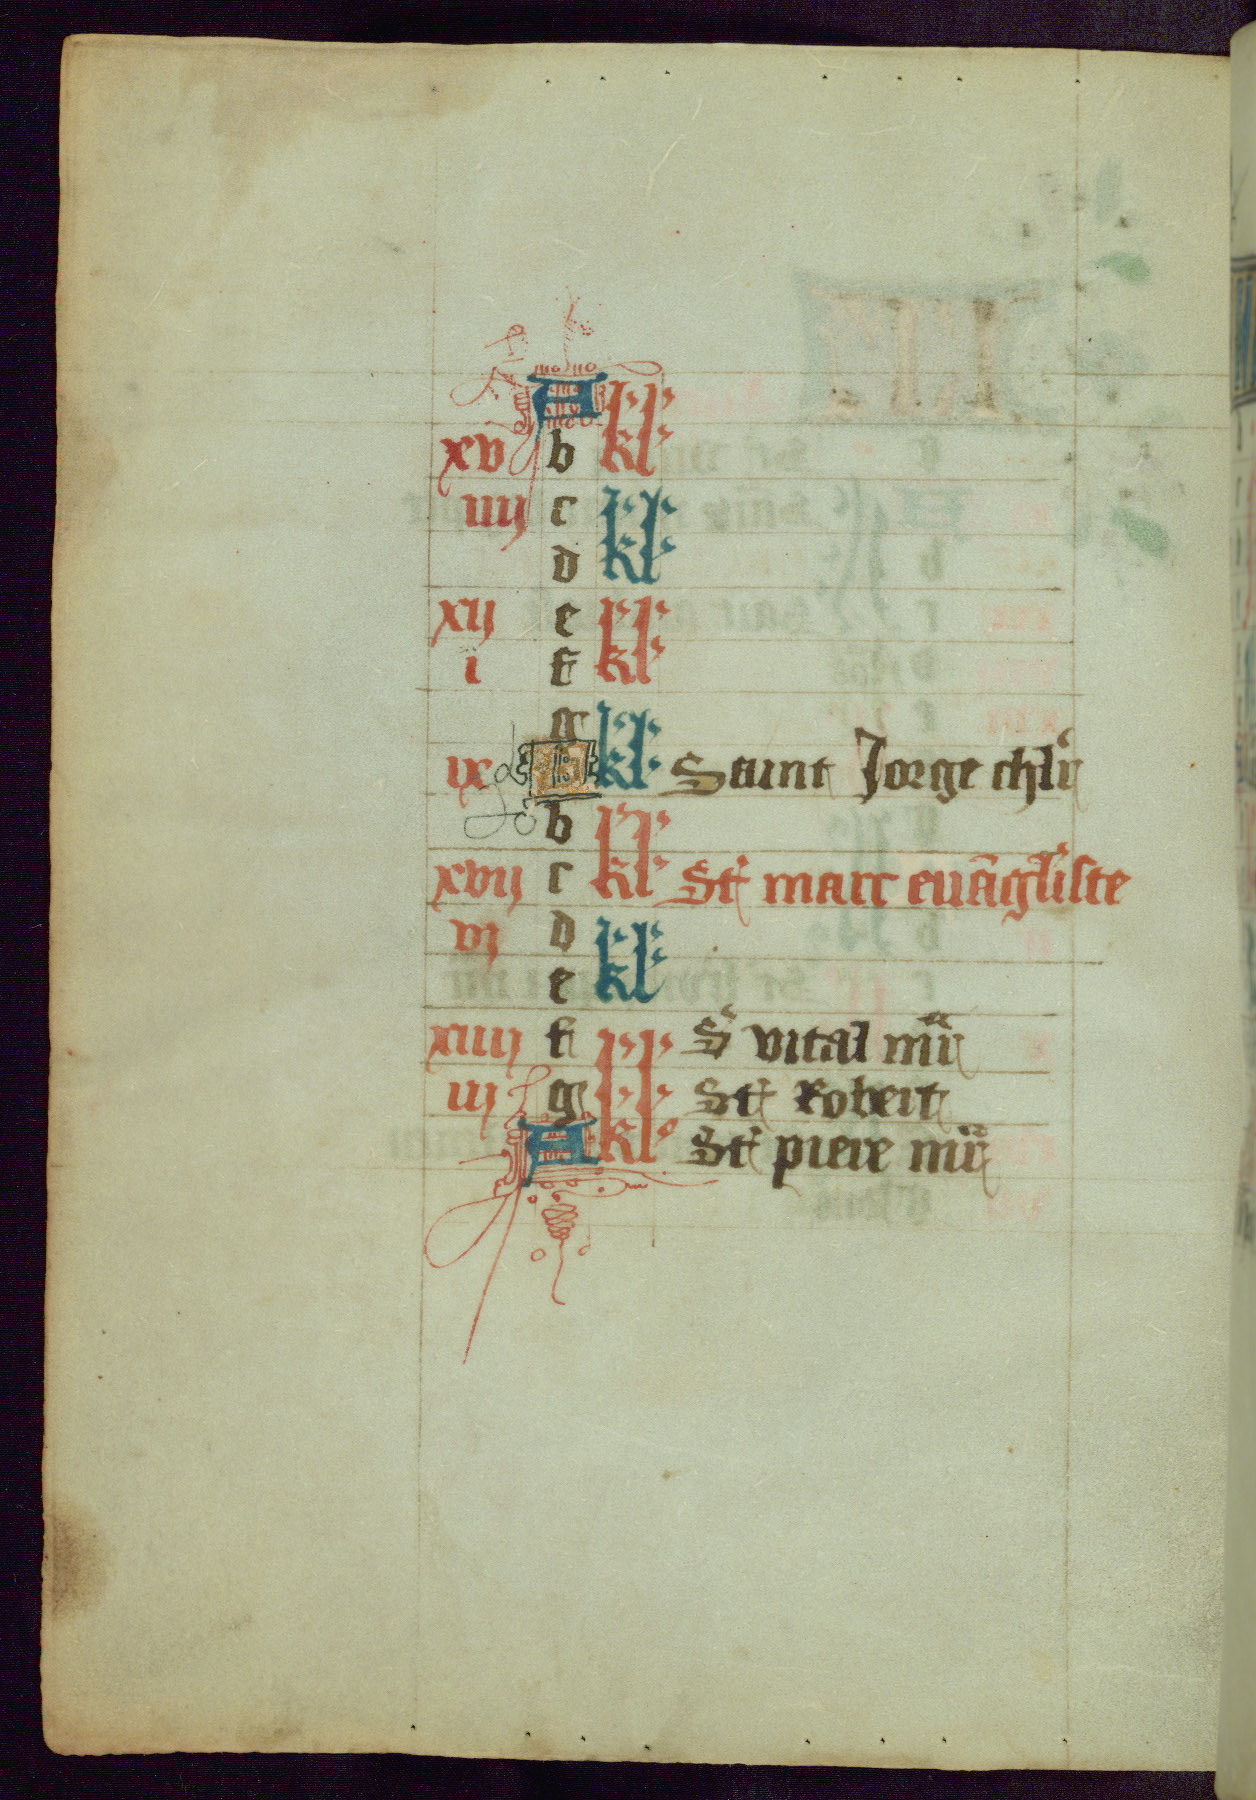 A kl'
xv b kl'
iiij c kl'
d kl'
xij e kl'
i f kl'
g kl'
ix A kl' Saint Jorge chl'r
b kl'
xvij c kl' St' marc euāgl'iste
vj d kl'
e kl'
xiiij f kl' S' vital m̄r
iij g kl' St' Robert
A kl' St' piere m̄r